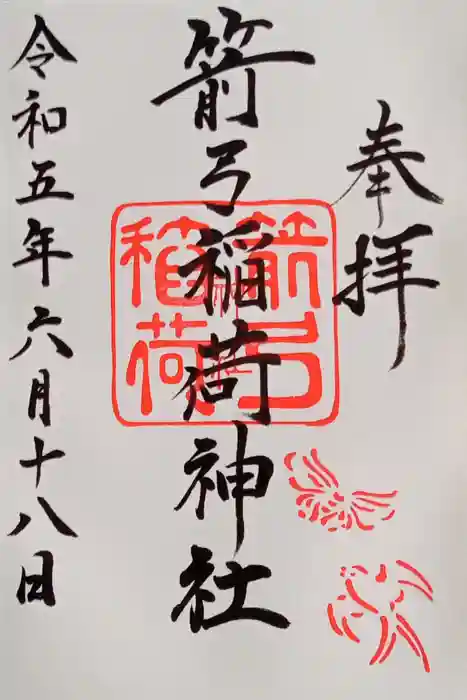 奉拝
箭弓稲荷神社
箭弓
稲荷
令和五年六月十八日